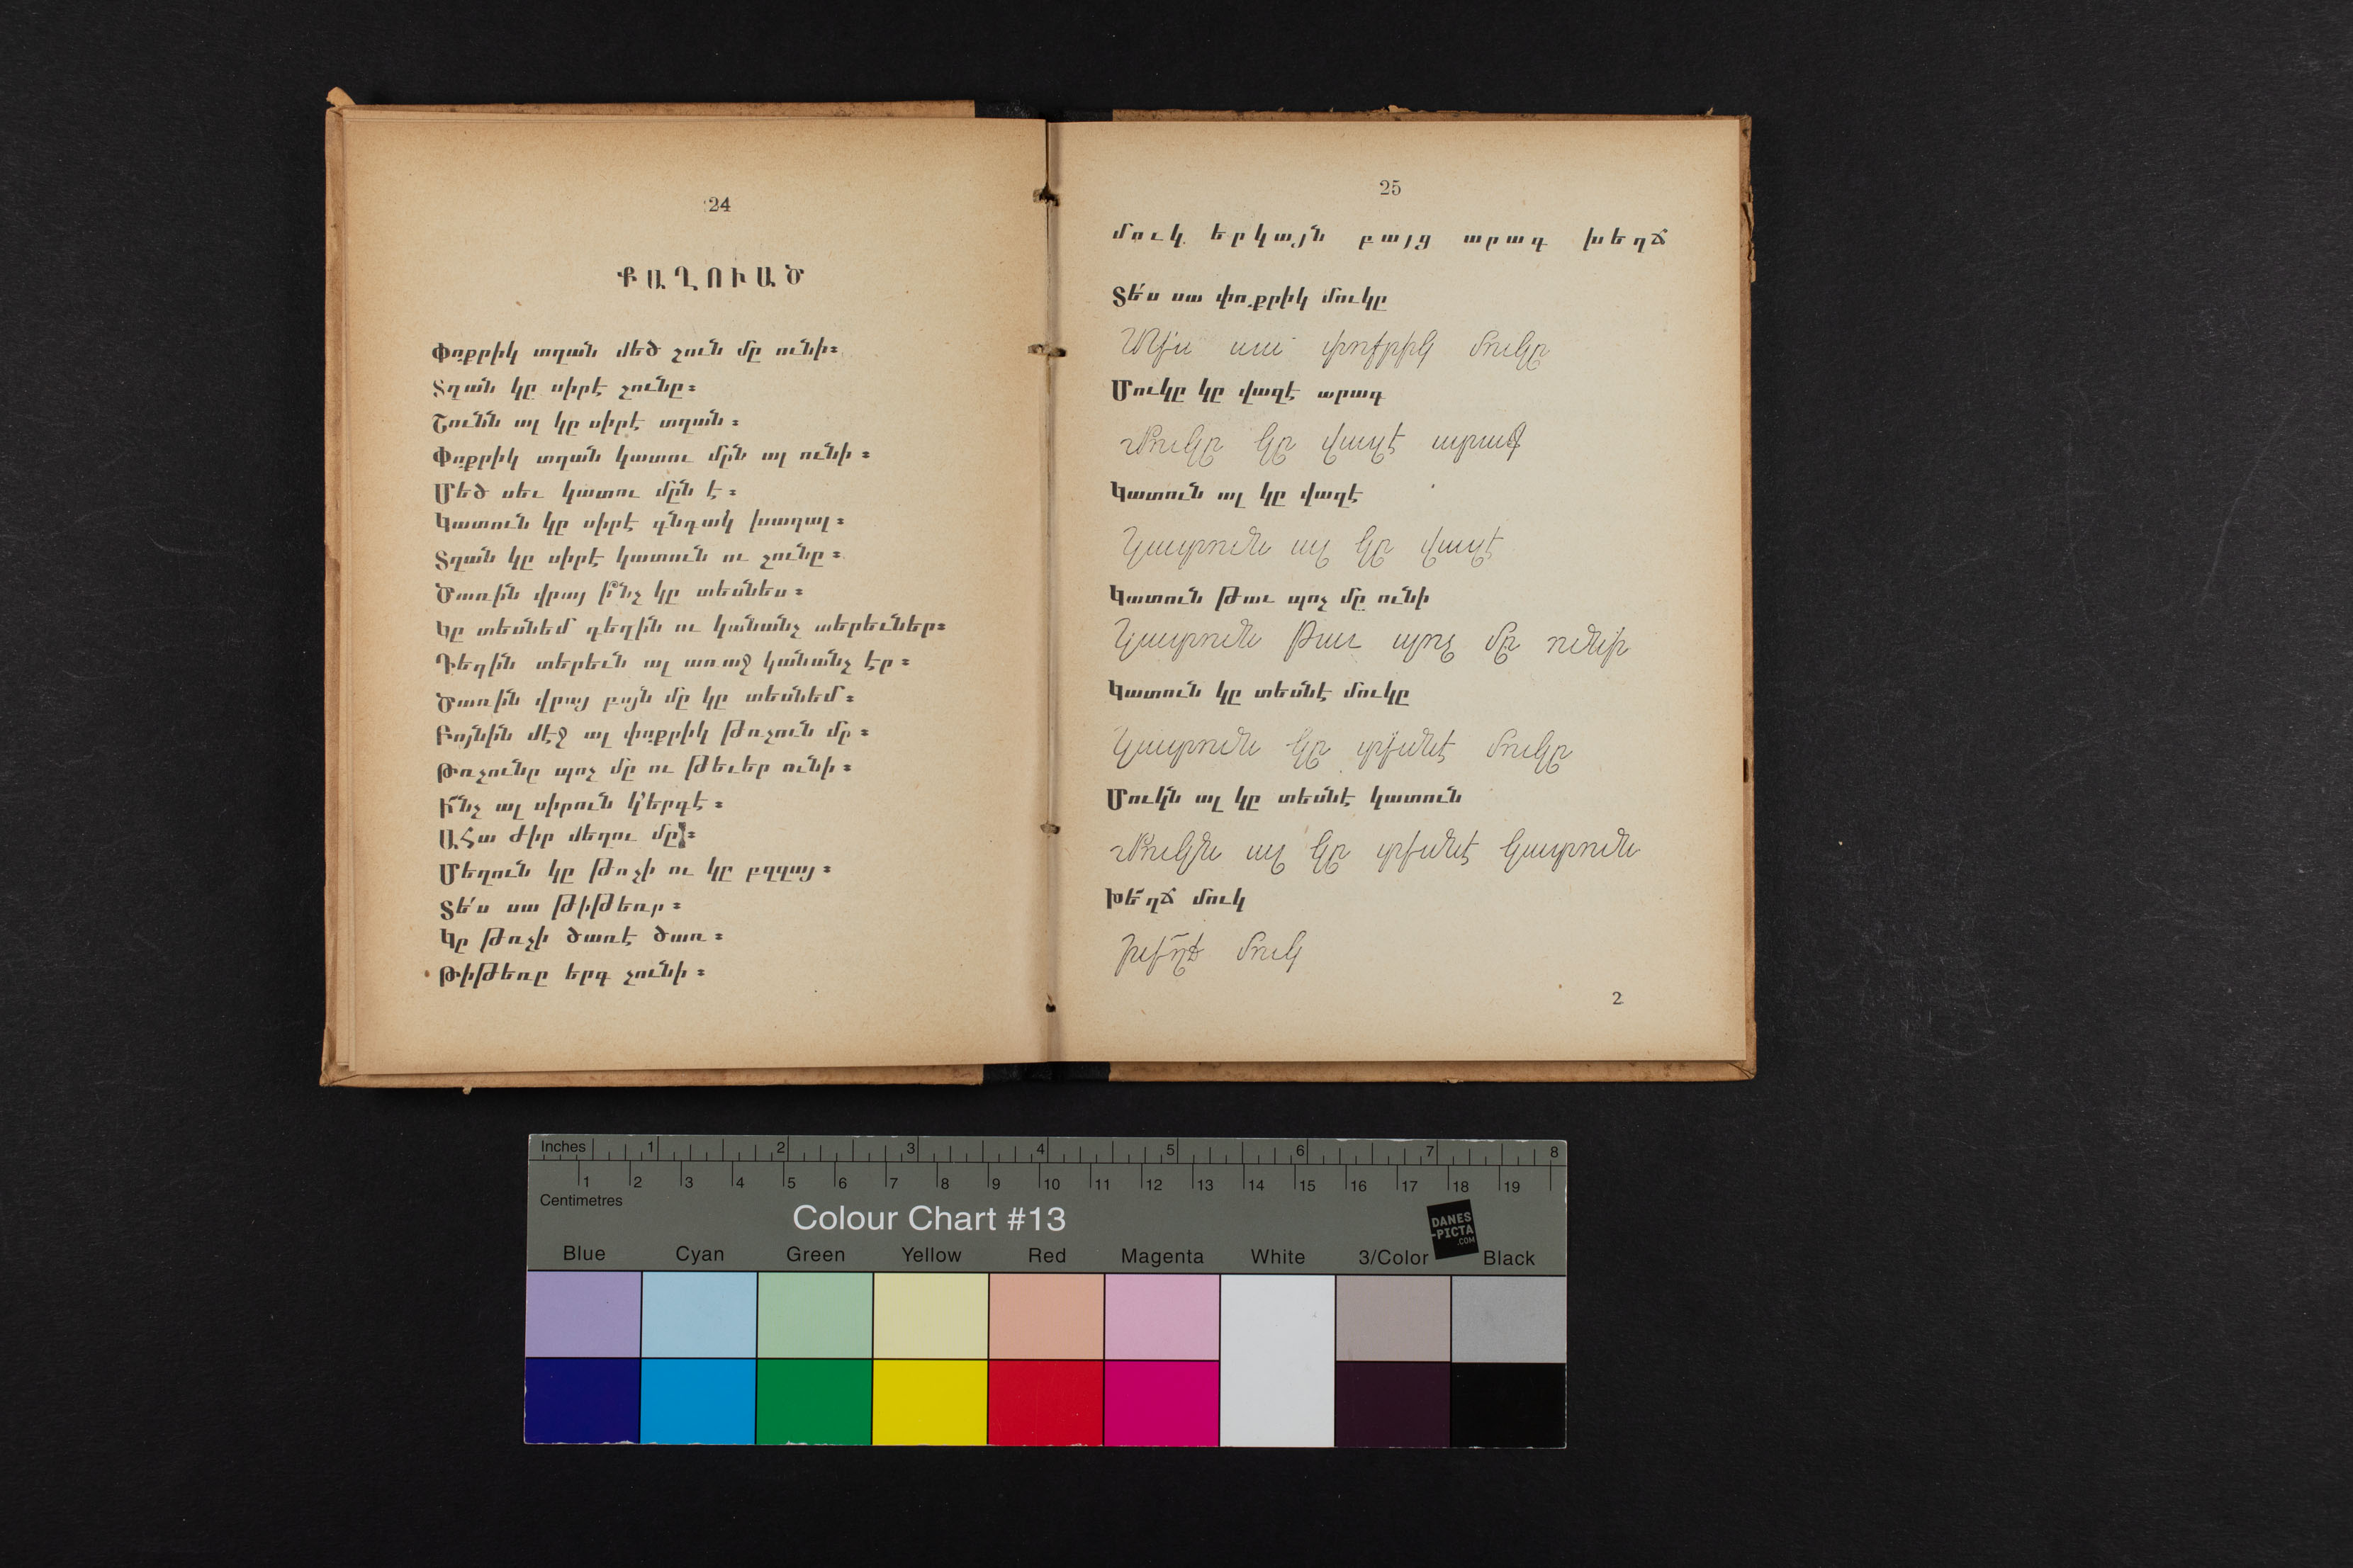 24
ՔԱՂՈՒԱԾ
Փոքրիկ տղան մեծ շուն մը ունի։
Տղան կը սիրէ շունը։
Շունն ալ կը սիրէ տղան։
Փոքրիկ տղան կատու մըն ալ ունի։
Մեծ սեւ կատու մըն է։
Կատուն կը սիրէ գնդակ խաղալ։
Տղան կը սիրէ կատուն ու շունը։
Ծառին վրայ ի՞նչ կը տեսնես։
Կը տեսնեմ դեղին ու կանանչ տերեւներ։
Դեղին տերեւն ալ առաջ կանանչ էր։
Ծառին վրայ բոյն մը կը տեսնեմ։
Բոյնին մէջ ալ փոքրիկ թռչուն մը։
Թռչունը պոչ մը ու թեւեր ունի։
Ի՜նչ ալ սիրուն կ՚երգէ։
Ահա ժիր մեղու մը։
Մեղուն կը թռչի ու կը բզզայ։
Տե՛ս սա թիթեռը։
Կը թռչի ծառէ ծառ։
Թիթեռը երգ չունի։
25
մուկ երկայն բայց արագ խեղճ
Տե՛ս սա փոքրիկ մուկը
Տե՛ս սա փոքրիկ մուկը
Մուկը կը վազէ արագ
Մուկը կը վազէ արագ
Կատուն ալ կը վազէ
Կատուն ալ կը վազէ
Կատուն թաւ պոչ մը ունի
Կատուն թաւ պոչ մը ունի
Կատուն կը տեսնէ մուկը
Կատուն կը տեսնէ մուկը
Մուկն ալ կը տեսնէ կատուն
Մուկն ալ կը տեսնէ կատուն
Խե՜ղճ մուկ
Խե՜ղճ մուկ
2
Inches 1 2 3 4 5 6 7 8
1 2 3 4 5 6 7 8 9 10 11 12 13 14 15 16 17 18 19
Centimetres
Colour Chart #13
DANES
-PICTA
.COM
Blue Cyan Green Yellow Red Magenta White 3/Color Black